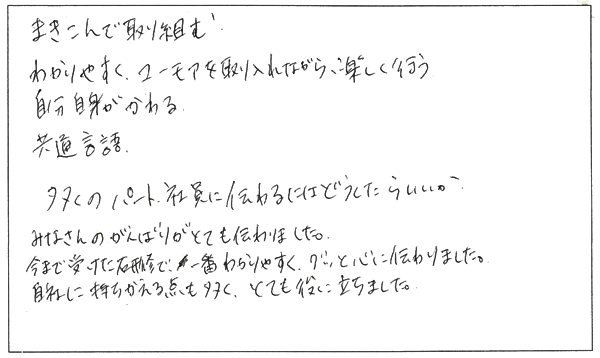 まきこんで取り組む
わかりやすく、ユーモアを取り入れながら、楽しく行う
自分自身がかわる
共通言語.
多くのパート、社員に伝わるにはどうしたらいいか
みなさんのがんばりがとても伝わりました。
今まで受けた研修で、一番わかりやすく、グッと心に伝わりました。
自社に持ちかえる点も多く、とても役に立ちました。